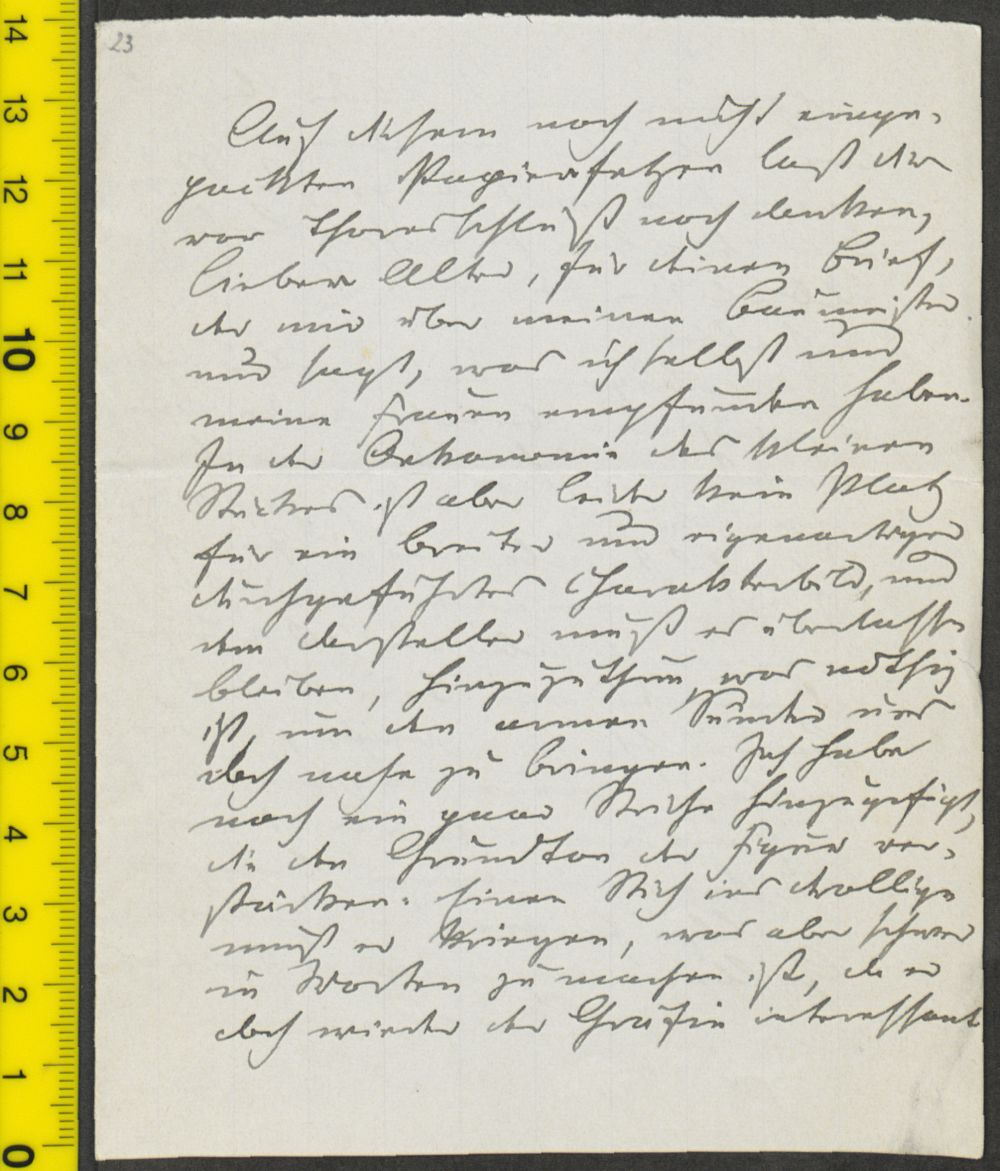 23
Auf diesem noch nicht einge-
packten Papierfetzen laß dir
vor Thoresschluß noch danken,
lieber Alter, für deinen Brief,
der mir über meinen Baumeister
nur sagt, was ich selbst und
meine Frauen empfunden haben.
In der Oekonomie des kleinen
Stückes ist aber leider kein Platz
für ein breiter und eigenartiger
durchgeführtes Charakterbild, und
dem Darsteller muß es überlassen
bleiben, hinzuzuthun, was nöthig
ist, um den armen Sünder uns
doch nahe zu bringen. Ich habe
noch ein paar Striche hinzugefügt,
die den Grundton der Figur ver-
stärken. Einen Stich ins drollige
muß er kriegen, was aber schwer
in Worten zu machen ist, da er
doch wieder der Gräfin interessant